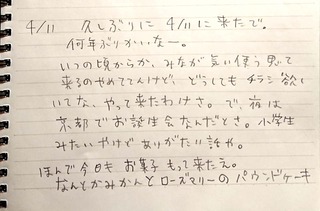 4/11 久しぶりに 4/11に来たで。
何年ぶりかいなー。
いつの頃からか、みなが気い使う思て
来るのやめててんけど、どうしてもチラシ欲し
いてな、やって来たわけさ。で、夜は
京都でお誕生会なんだとさ。小学生
みたいやけどありがたい話や。
ほんで今日も お菓子 もって来たえ。
なんとかみかんとローズマリーのパウンドケーキ